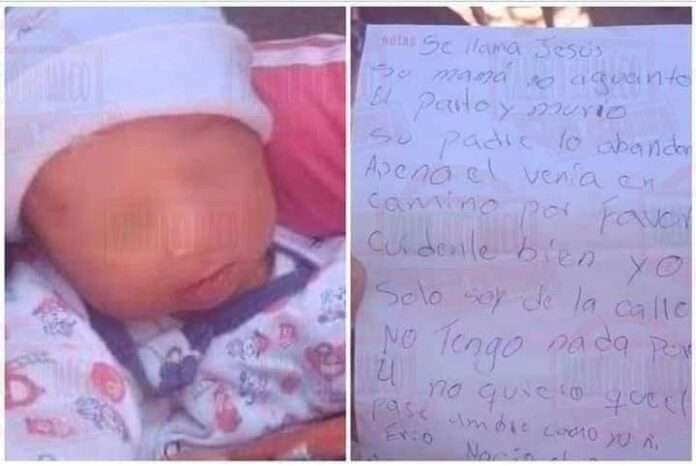 notas
Se llama Jesús
Su mamá no aguanto
El parto y murio
Su padre lo abandon
Apena el venía en
camino por Favor
Cuidenle bien yo
Solo soy de la calle
No Tengo nada por
El no quiero que el
pase ambre como yo ni
Frio